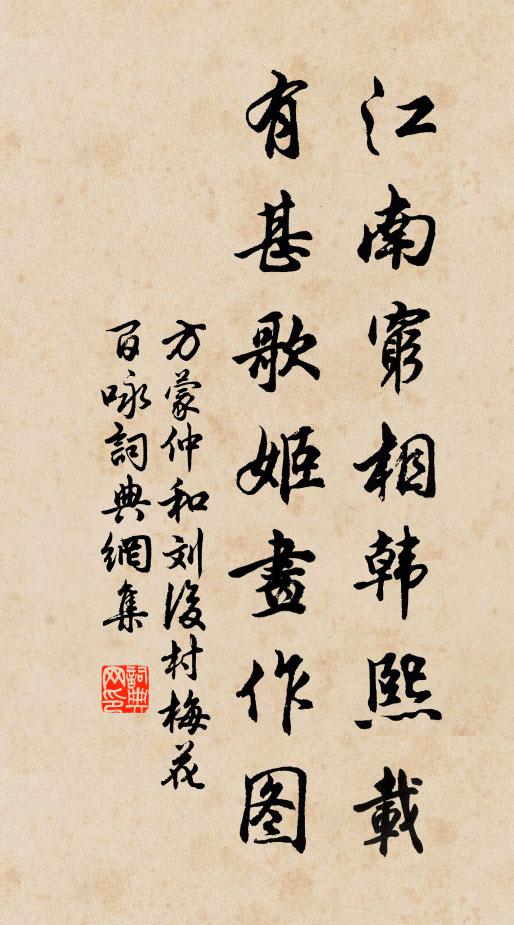 江南窮相韩熙載
有甚歌姬畫作图
方蒙仲和刘後村梅花
百咏詞典網集
詞典网印